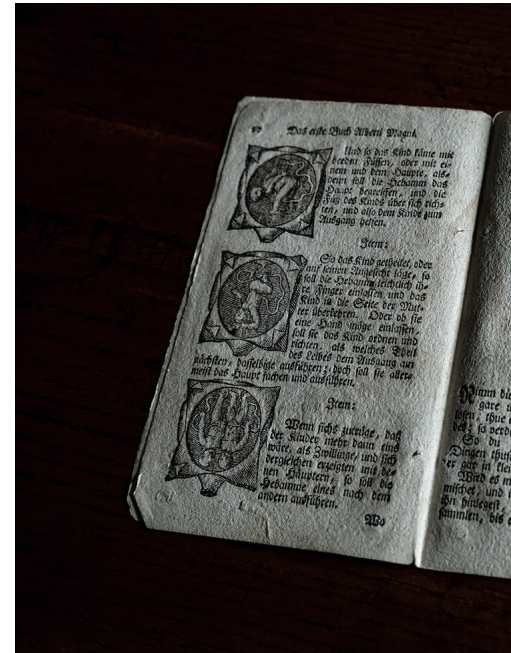 Das erste Buch Alberti Magni.
Und so das Kind käme mit
beeden Füssen, oder mit ei-
nem und dem Haupte, als-
denn soll die Hebamm das
Haupt begreiffen, und die
Füß des Kinds über sich rich-
ten, und also dem Kinde zum
Ausgang helfen.
Item:
So das Kind getheilet, oder
auf seinem Angesicht läge, so
soll die Hebamm leichtlich ih-
re Finger einlassen und das
Kind in die Seite der Mut-
ter überkehren. Oder ob sie
eine Hand möge einlassen,
soll sie das Kind ordnen und
richten, als welches Theil
des Leibes dem Ausgang am
nächsten, dasselbige ausführen; doch soll sie aller-
meist das Haupt suchen und ausführen.
Item:
Wenn sichs zutrüge, daß
der Kinder mehr dann eins
wäre, als Zwillinge, und sich
dergleichen erzeigten mit de-
nen Häuptern, so soll die
Hebamme eines nach dem
andern ausführen.
Wo
Nimm die
gare u
losen, thue
des: so werde
So du
Dingen thust
er gar in klei
Wird es m
mischet, und i
ihn hinlegest,
sammlen, bis